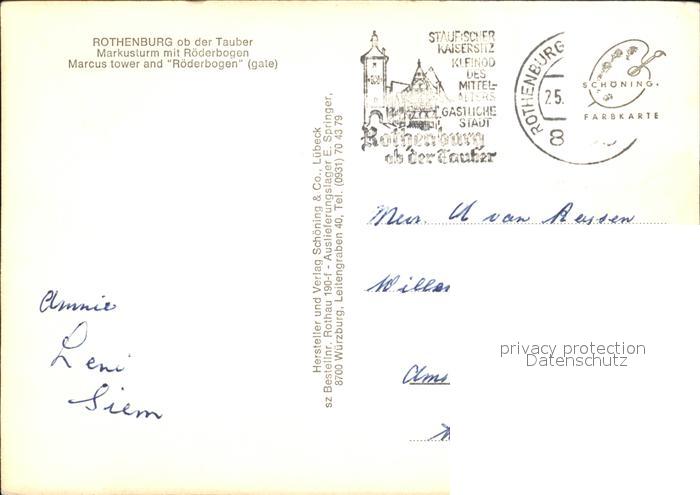 ROTHENBURG ob der Tauber
Markusturm mit Röderbogen
Marcus tower and "Röderbogen" (gate)
STAUFISCHER
KAISERSITZ
KLEINOD
DES
MITTEL-
ALTERS
GASTLICHE
STADT
Rothenburg
ob der Tauber
ROTHENBURG
25.
8
SCHÖNING
FARBKARTE
Hersteller und Verlag Schöning & Co., Lübeck
sz Bestellnr. Rothau 190-f - Auslieferungslager E. Springer,
8700 Würzburg, Leitengraben 40, Tel. (0931) 70 43 79
Mevr. A van Ressen
Annie
Leni
Siem
privacy protection
Datenschutz